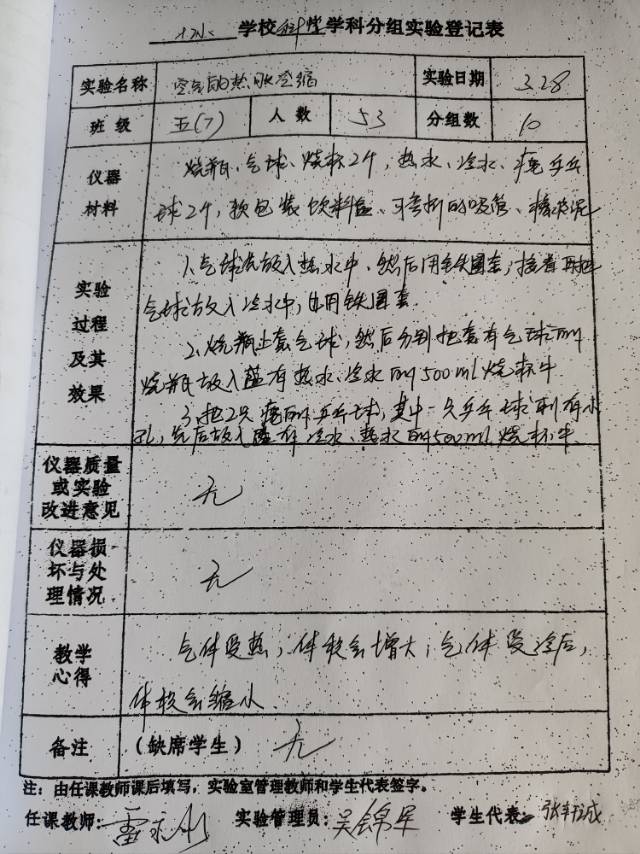 学校科学学科分组实验登记表
实验名称 空气的热胀冷缩 实验日期 3.28
班级 五(7) 人数 53 分组数 10
仪器材料 烧瓶、气球、烧杯2个,热水、冷水、瘪乒乓
球2个,软包装饮料盒、可弯折的吸管、橡皮泥
实验过程及其效果 1.气球先放入热水中,然后用铁圈套,接着再把
气球放入冷水中,也用铁圈套.
2.烧瓶上套气球,然后分别把套有气球的
烧瓶放入盛有热水、冷水的500ml烧杯中
3.把2只瘪的乒乓球,其中一只乒乓球刺有小
孔,先后放入盛有冷水、热水的500ml烧杯中.
仪器质量或实验改进意见 无
仪器损坏与处理情况 无
教学心得 气体受热,体积会增大;气体受冷后,
体积会缩小.
备注 (缺席学生) 无
注:由任课教师课后填写,实验室管理教师和学生代表签字。
任课教师: 实验管理员:吴锦军 学生代表: